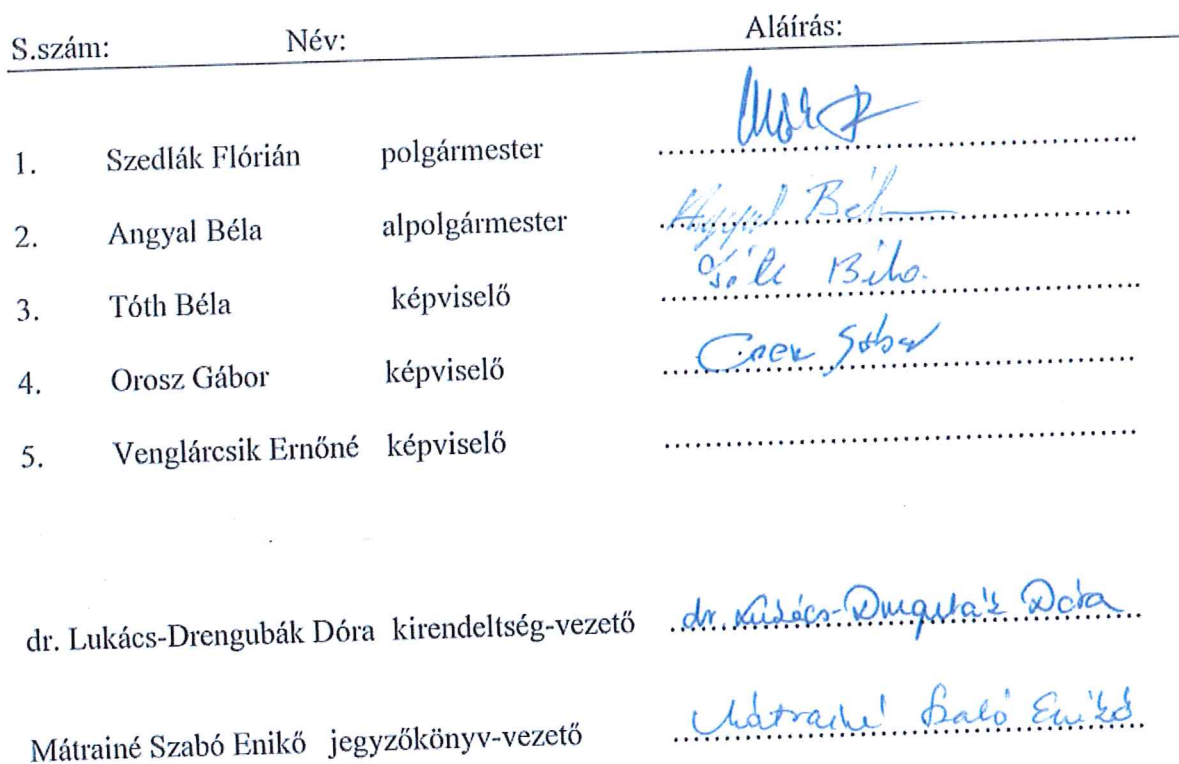 S.szám: Név: Aláírás:
1. Szedlák Flórián polgármester
2. Angyal Béla alpolgármester Angyal Béla
3. Tóth Béla képviselő Tóth Béla.
4. Orosz Gábor képviselő Orosz Gábor
5. Venglárcsik Ernőné képviselő
dr. Lukács-Drengubák Dóra kirendeltség-vezető dr. Lukács-Drengubák Dóra
Mátrainé Szabó Enikő jegyzőkönyv-vezető Mátrainé Szabó Enikő